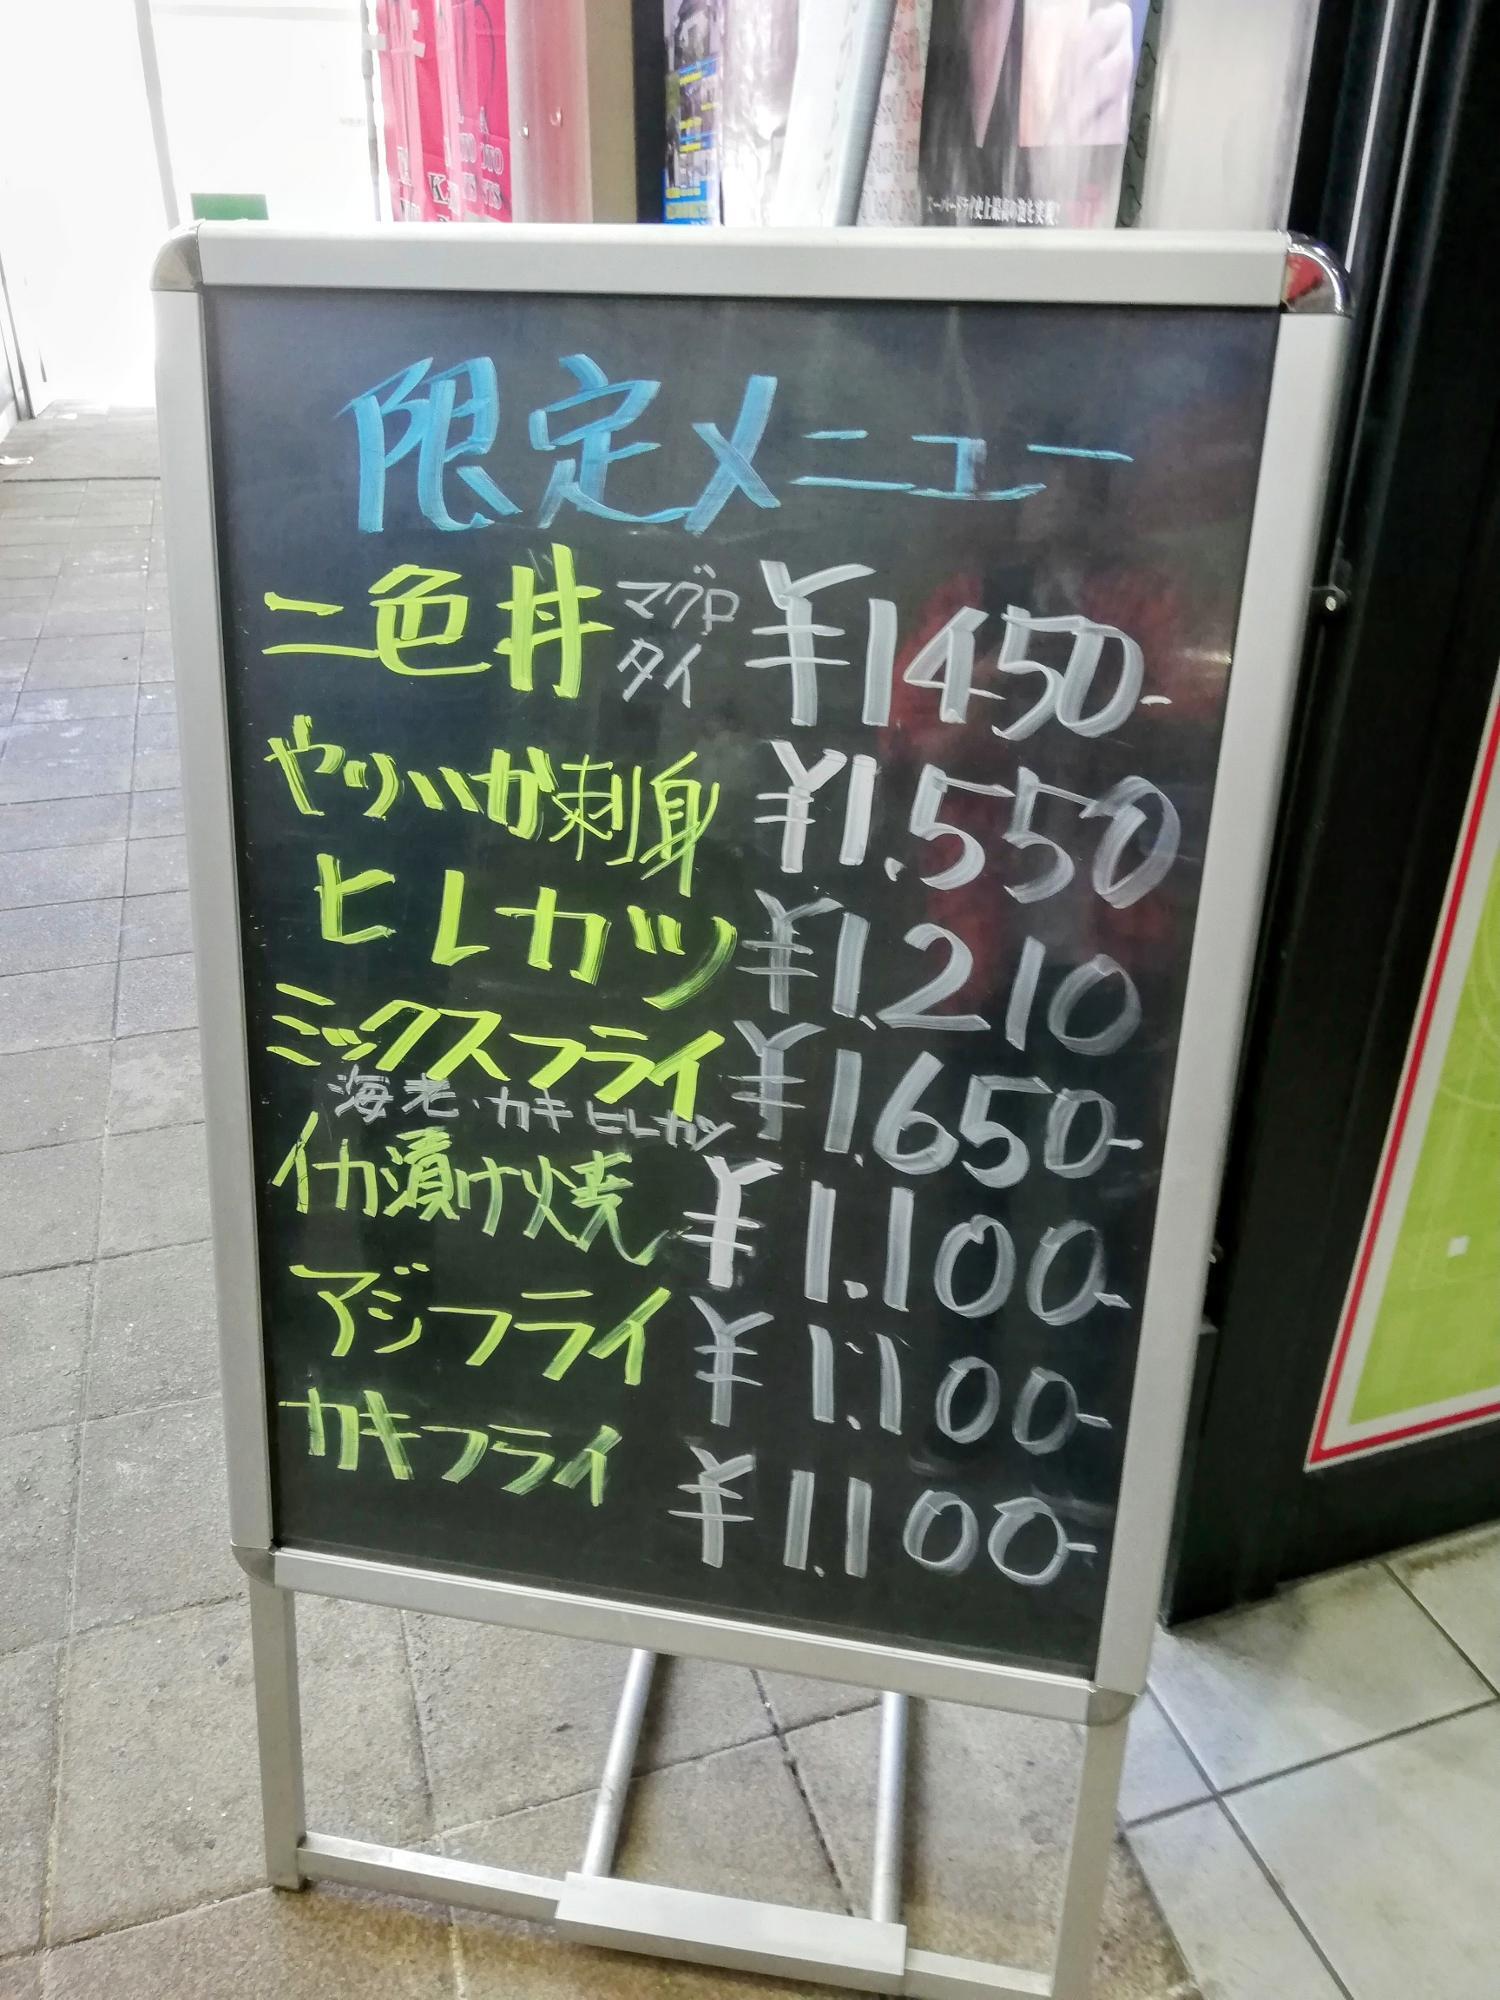 スーパードライ史上最高の泡を実現!
限定メニュー
二色丼 マグロ タイ ¥1450-
やりいか刺身 ¥1.550
ヒレカツ ¥1.210
ミックスフライ ¥1.650-
海老・カキ ヒレカツ
イカ漬け焼 ¥1.100-
アジフライ ¥1.100-
カキフライ ¥1.100-